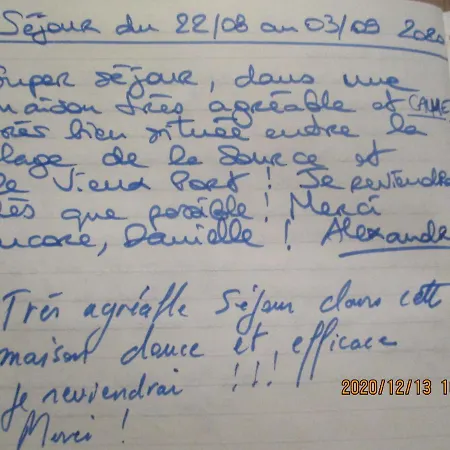 Séjour du 22/08 au 03/09 2020
Super séjour, dans une
maison très agréable et CALME
très bien située entre la
plage de la Source et
le Vieux Port ! Je reviendrai
dès que possible ! Merci
encore, Danielle ! Alexandre
Très agréable séjour dans cette
maison douce et efficace
Je reviendrai !!!
Merci !
2020/12/13 1